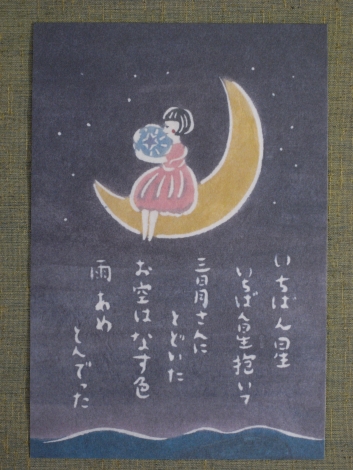 いちばん星
いちばん星抱いて
三日月さんに
とどいた
お空はなす色
雨あめ
とんでった